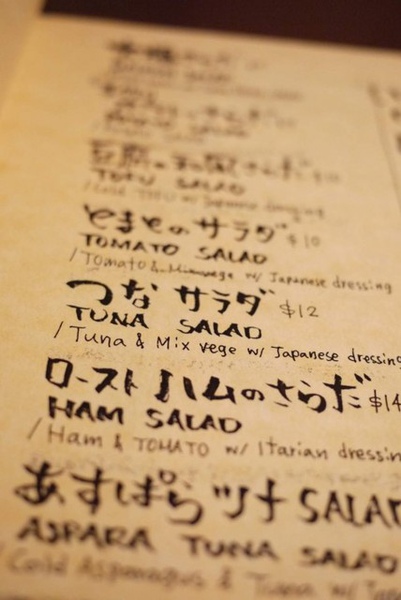 SALAD
豆腐の和風さらだ
TOFU SALAD
とまとのサラダ $10
TOMATO SALAD
/Tomato & Mixvege w/ Japanese dressing
つなサラダ $12
TUNA SALAD
/Tuna & Mix vege w/ Japanese dressing
ローストハムのさらだ $14
HAM SALAD
/Ham & TOMATO w/ Itarian dressin
あすぱらツナSALAD
ASPARA TUNA SALAD
/Cold Asparagus & Tuna w/ Jap